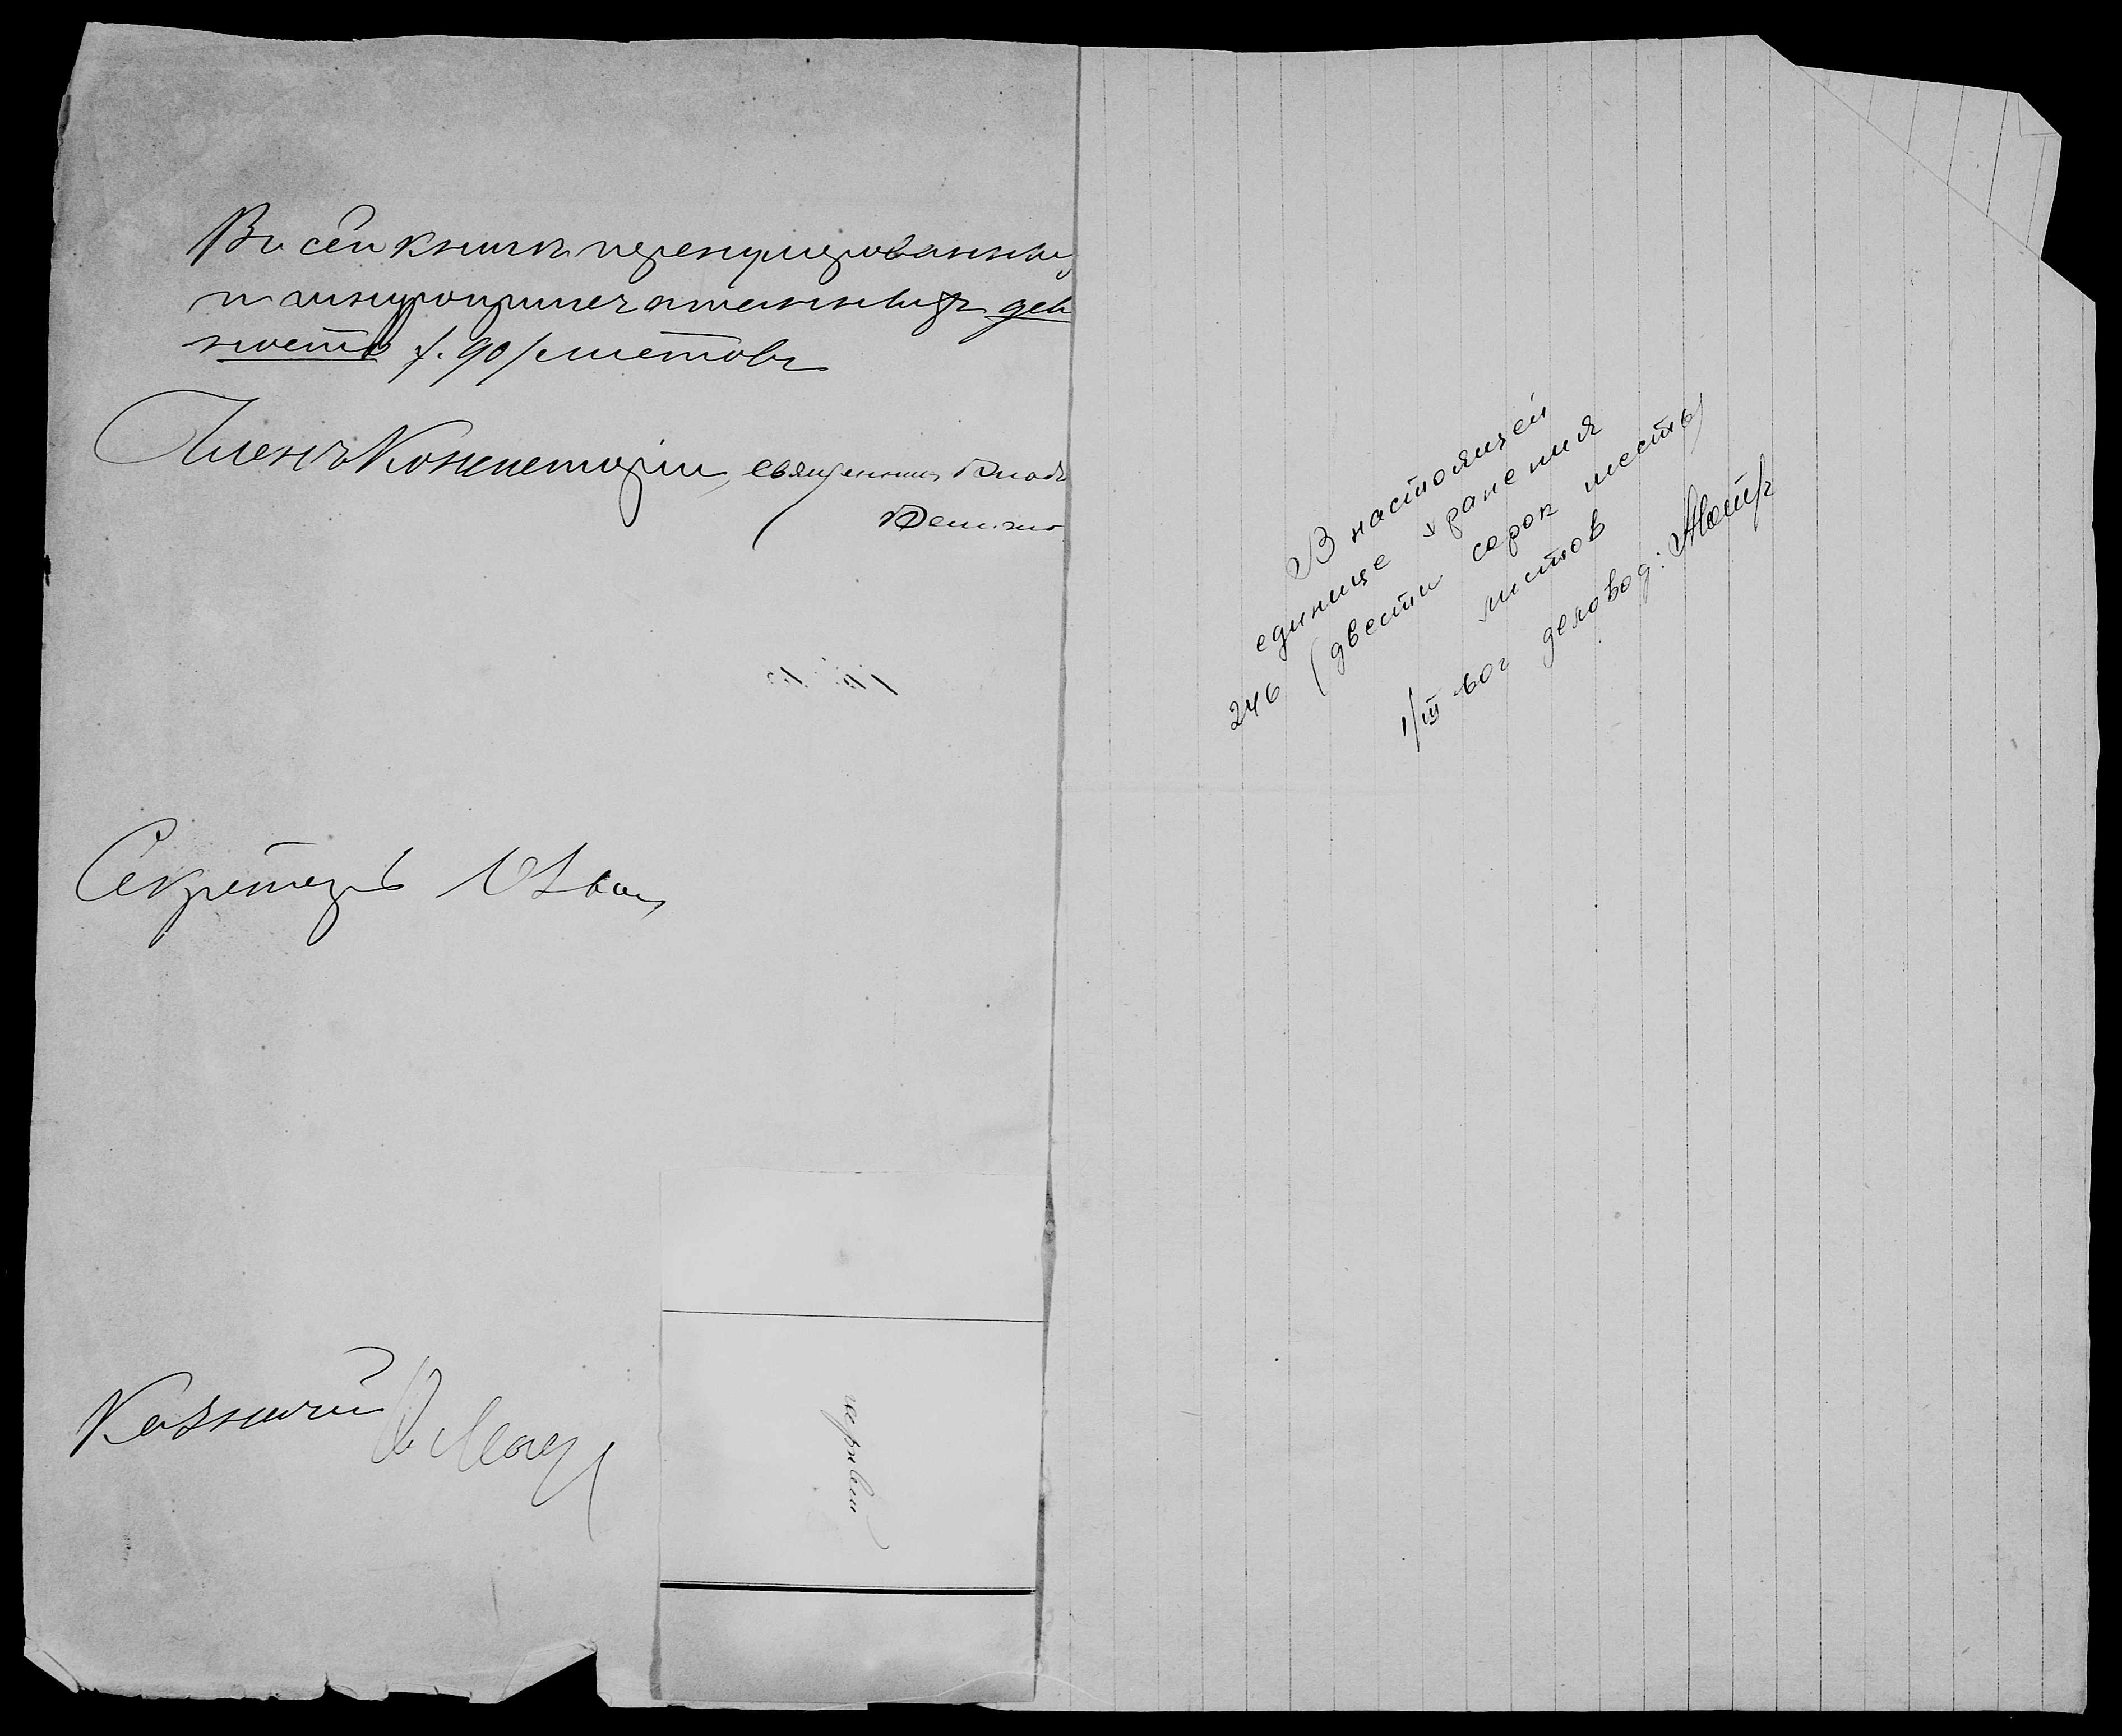 Въ сей книгѣ перенумерованныхъ
и шнуроприпечатанныхъ девя
носто /. 90/ листовъ
Членъ Консисторіи, священникъ
Секретарь
Казначей
церквей
В настоящей
единице хранения
246 (двести сорок шесть)
листов
1/III 60г деловод: